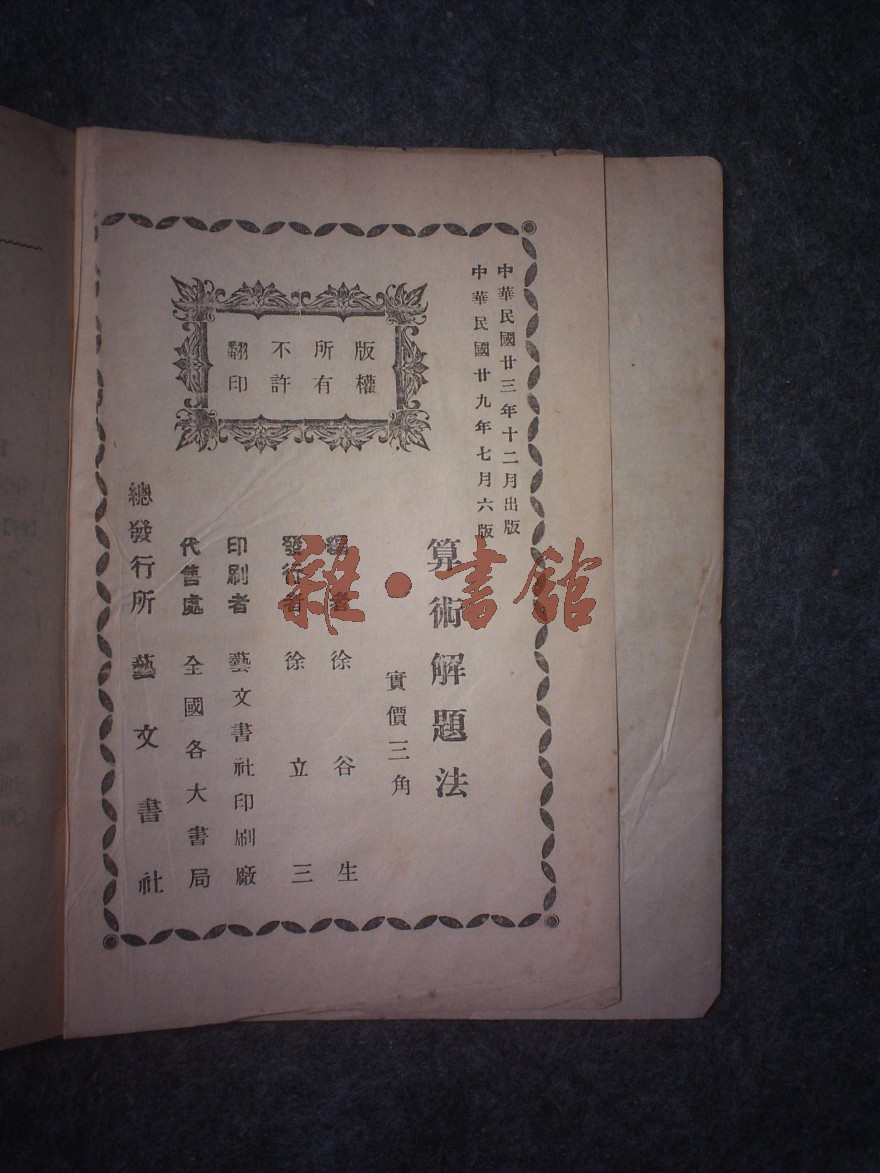 中華民國廿三年十二月出版
中華民國廿九年七月六版
算術解題法
實價三角
編者 徐谷生
發行者 徐立三
印刷者 藝文書社印刷廠
代售處 全國各大書局
總發行所 藝文書社
版權
所有
不許
翻印
雜·書館